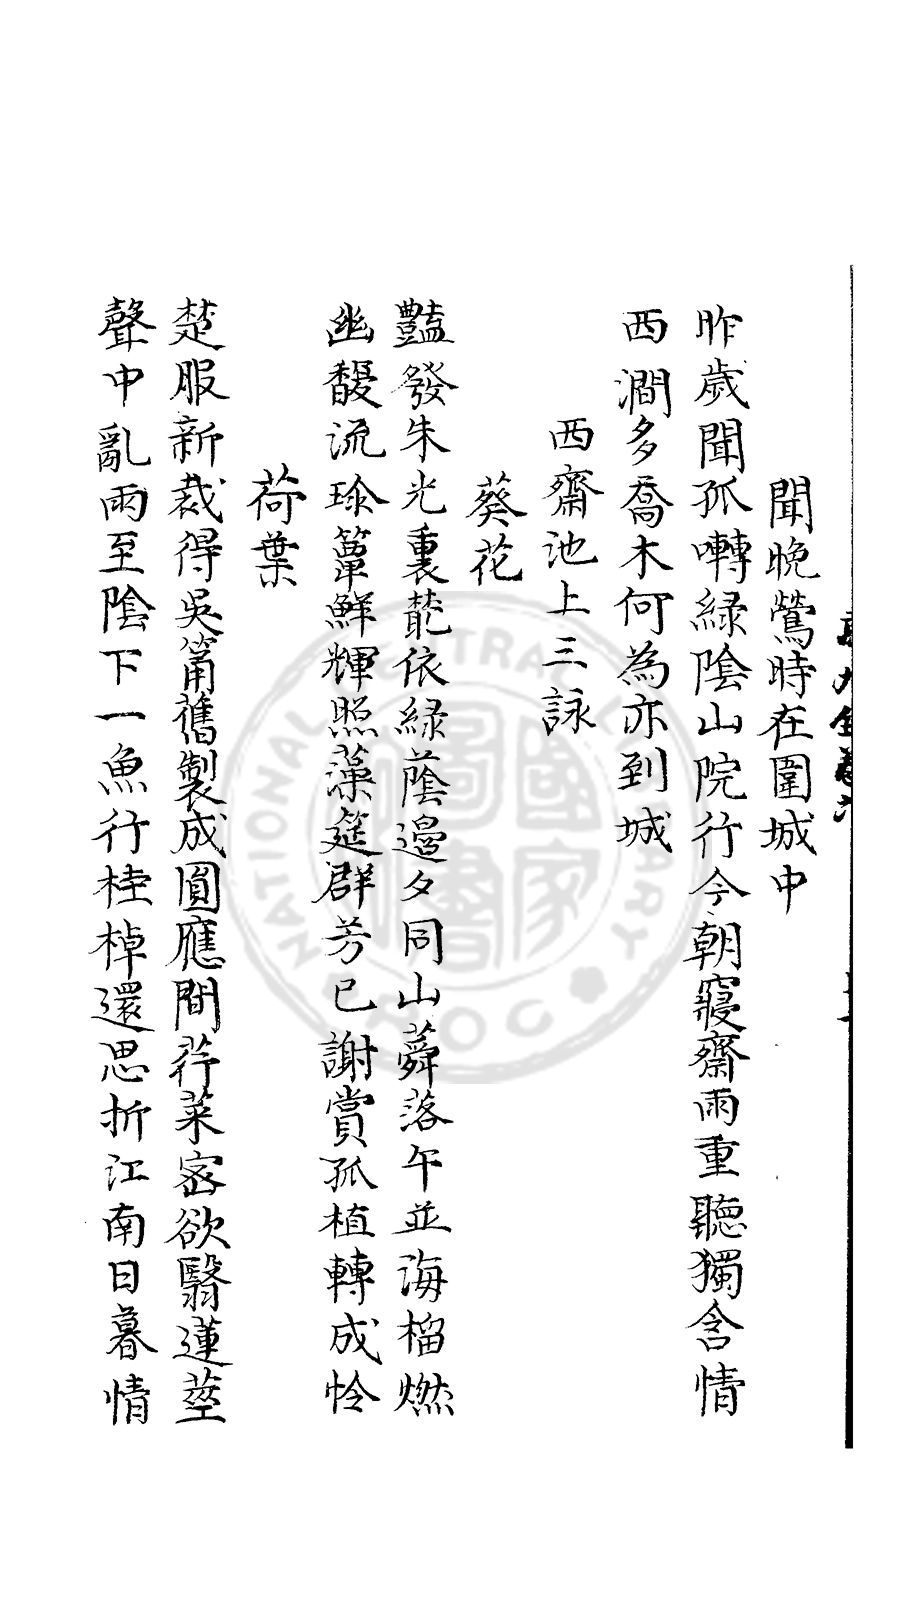 聞晚鶯時在圍城中
昨歲聞孤囀綠陰山院行今朝寢齋雨重聽獨含情
西澗多喬木何為亦到城
西齋池上三詠
葵花
豔發朱光裏叢依綠蔭邊夕同山蕣落午並海榴燃
幽馥流珍簟鮮輝照藻筵群芳已謝賞孤植轉成怜
荷葉
楚服新裁得吳筩舊製成圓應間荇菜密欲翳蓮莖
聲中亂雨至陰下一魚行桂棹還思折江南日暮情
國家圖書
NATIONAL CENTRAL LIBRARY
ROC